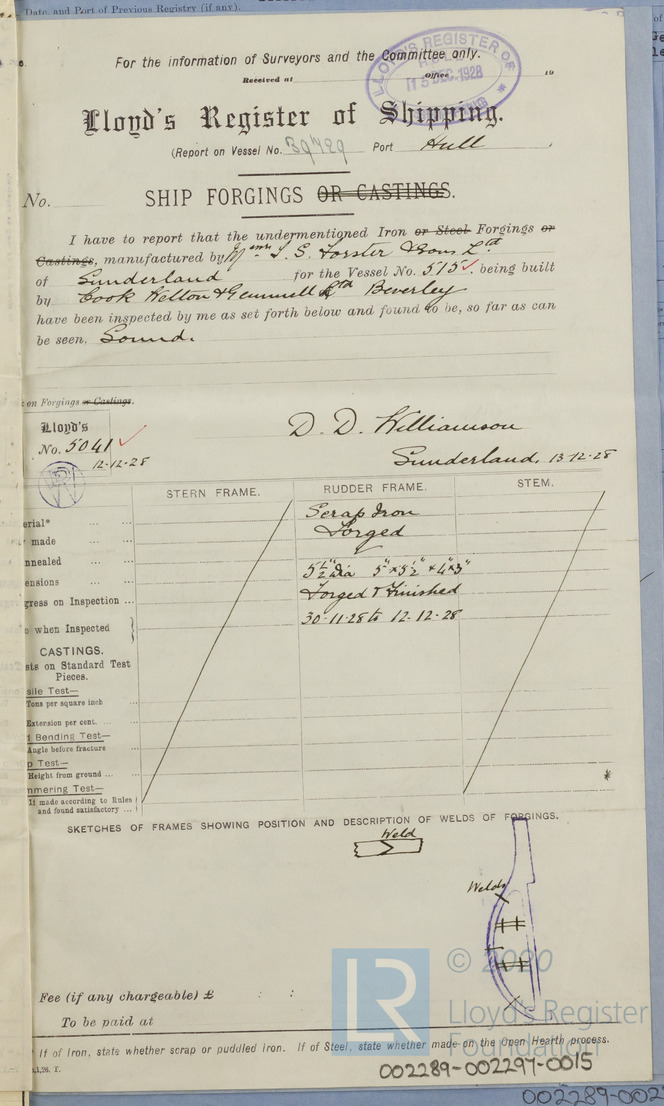 Date, and Port of Previous Registry (if any).
For the information of Surveyors and the Committee only.
Received at Office 19
LLOYD'S REGISTER OF
15 DEC. 1928
Lloyd's Register of Shipping.
(Report on Vessel No. 39729 Port Hull
No. SHIP FORGINGS OR CASTINGS.
I have to report that the undermentioned Iron or Steel Forgings or
Castings, manufactured by Messrs T. S. Forster & Sons Ltd
of Sunderland for the Vessel No. 515 being built
by Cook Welton & Gemmell Ltd Beverley
have been inspected by me as set forth below and found to be, so far as can
be seen, Sound.
on Forgings or Castings.
Lloyd's
No. 5041
12-12-28
D. D. Williamson
Sunderland, 13-12-28
STERN FRAME. RUDDER FRAME. STEM.
erial* Scrap Iron
made Forged
nnealed
ensions 5½" dia 5" × 3½" & 4" × 3"
gress on Inspection Forged & Finished
when Inspected 30-11-28 to 12-12-28
CASTINGS.
sts on Standard Test
Pieces.
sile Test—
Tons per square inch
Extension per cent.
Bending Test—
Angle before fracture
p Test—
Height from ground
mmering Test—
If made according to Rules
and found satisfactory
SKETCHES OF FRAMES SHOWING POSITION AND DESCRIPTION OF WELDS OF FORGINGS.
Weld
Welds
Fee (if any chargeable) £ : :
To be paid at
* If of Iron, state whether scrap or puddled iron. If of Steel, state whether made on the Open Hearth process.
LR
© 2020
Lloyd's Register
Foundation
002289-002297-0015
002289-002